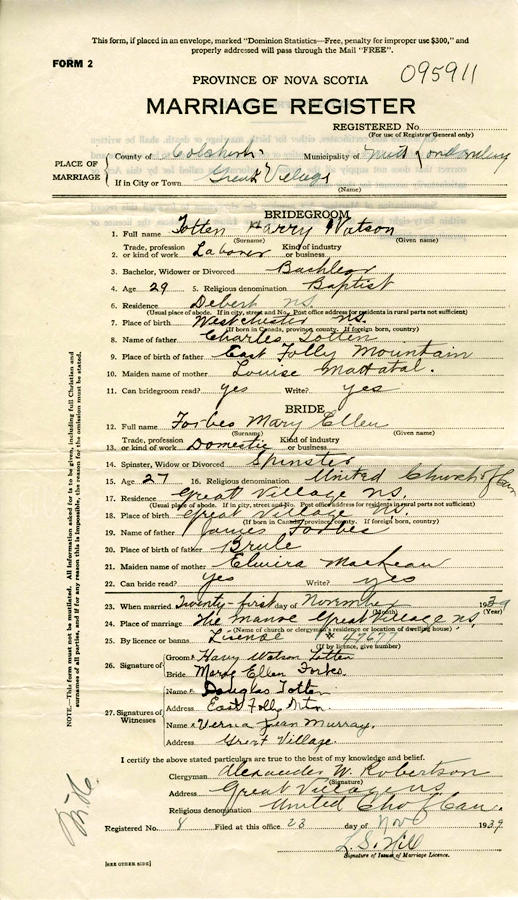 This form, if placed in an envelope, marked "Dominion Statistics—Free, penalty for improper use $300," and
properly addressed will pass through the Mail "FREE".
FORM 2
PROVINCE OF NOVA SCOTIA
095911
MARRIAGE REGISTER
REGISTERED No.
(For use of Registrar General only)
PLACE OF MARRIAGE
County of Colchester Municipality of West Londonderry
If in City or Town Great Village
(Name)
BRIDEGROOM
1. Full name Totten Harry Watson
(Surname) (Given name)
2. Trade, profession or kind of work Laborer Kind of industry or business
3. Bachelor, Widower or Divorced Bachleor
4. Age 29 5. Religious denomination Baptist
6. Residence Debert N.S.
(Usual place of abode. If in city, street and No. Post office address for residents in rural parts not sufficient)
7. Place of birth Westchester N.S.
(If born in Canada, province, county. If foreign born, country)
8. Name of father Charles Totten
9. Place of birth of father East Folly Mountain
10. Maiden name of mother Louise Mattatal.
11. Can bridegroom read? yes Write? yes
BRIDE
12. Full name Forbes Mary Ellen
(Surname) (Given name)
13. Trade, profession or kind of work Domestic Kind of industry or business
14. Spinster, Widow or Divorced Spinster
15. Age 27 16. Religious denomination United Church of Can
17. Residence Great Village N.S.
(Usual place of abode. If in city, street and No. Post office address for residents in rural parts not sufficient)
18. Place of birth Great Village N.S.
(If born in Canada, province, county. If foreign born, country)
19. Name of father James Forbes
20. Place of birth of father Brule
21. Maiden name of mother Elmira MacLean
22. Can bride read? yes Write? yes
23. When married Twenty-first day of November 1939
(Month) (Year)
24. Place of marriage The Manse Great Village N.S.
(Name of church or clergyman's residence or location of dwelling house)
25. By licence or banns License # 47677
(If by licence, give number)
26. Signature of
Groom Harry Watson Totten
Bride Mary Ellen Forbes
27. Signatures of Witnesses
Name Douglas Totten
Address East Folly Mtn.
Name Verna Jean Murray.
Address Great Village.
I certify the above stated particulars are true to the best of my knowledge and belief.
Clergyman Alexander W. Robertson
(Signature)
Address Great Village N.S.
Religious denomination United Cho of Can.
Registered No. 8 Filed at this office 23 day of Nov 1939.
L. S. Hill
Signature of Issuer of Marriage Licence.
[SEE OTHER SIDE]
NOTE.—This form must not be mutilated. All information asked for is to be given, including full Christian and
surnames of all parties, and if for any reason this is impossible, the reason for the omission must be stated.